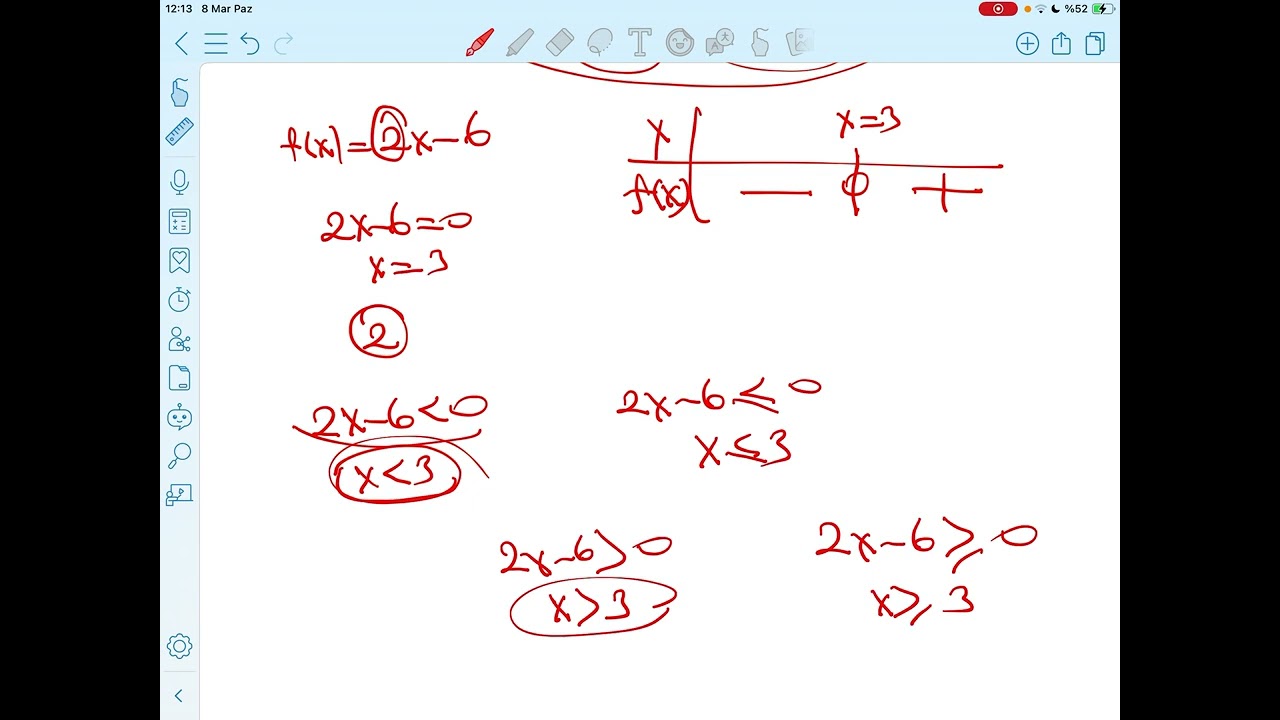 12:13 8 Mar Paz %52
T
f(x)=2x-6
x x=3
f(x) — 0 +
2x-6=0
x=3
2
2x-6<0
x<3
2x-6≤0
x≤3
2x-6>0
x>3
2x-6≥0
x≥3